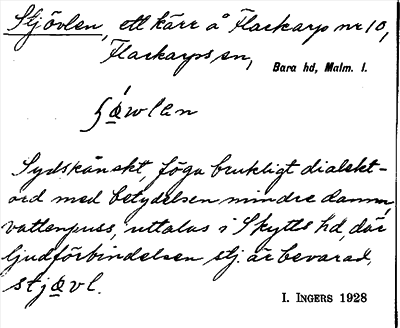 Stjövlen, ett kärr å Flackarp nr 10,
Flackarps sn,
Bara hd, Malm. l.
ʃǿwlən
Sydskånskt, föga brukligt dialekt-
ord med betydelsen mindre damm,
vattenpuss; uttalas i Skytts hd, där
ljudförbindelsen stj är bevarad,
stjøvl.
I. INGERS 1928